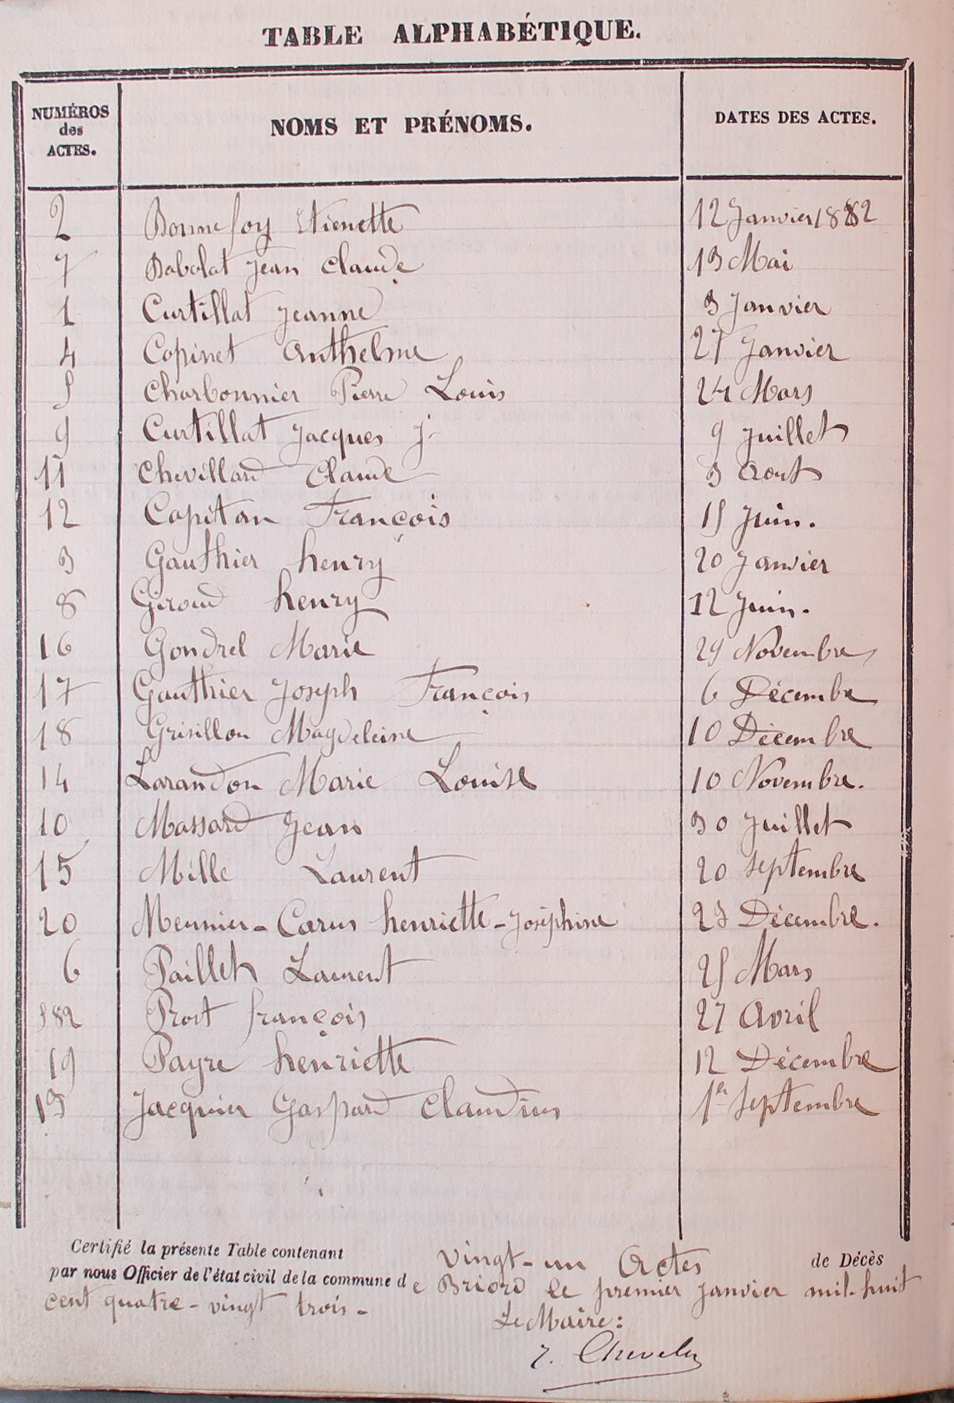 TABLE ALPHABÉTIQUE.
NUMÉROS des ACTES. NOMS ET PRÉNOMS. DATES DES ACTES.
2 Bonnefoy Etienette 12 Janvier 1882
7 Babolat Jean Claude 13 Mai
1 Curtillat Jeanne 3 Janvier
4 Copinet Anthelme 27 Janvier
5 Charbonnier Pierre Louis 24 Mars
9 Curtillat Jacques J. 9 Juillet
11 Chevillard Claude 3 Aout
12 Capitan François 15 Juin.
3 Gauthier henry 20 Janvier
8 Giroud henry 12 Juin.
16 Gondrel Marie 29 Novembre
17 Gauthier Joseph François 6 Décembre
18 Grisillon Magdeleine 10 Décembre
14 Larandon Marie Louise 10 Novembre.
10 Massard Jean 30 Juillet
15 Mille Laurent 20 Septembre
20 Meunier-Carus henriette-Joséphine 25 Décembre.
6 Paillet Laurent 25 Mars
Prost françois 27 Avril
19 Payre henriette 12 Décembre
13 Jacquier Gaspard Claudius 1er Septembre
Certifié la présente Table contenant vingt-un Actes de Décès
par nous Officier de l'état civil de la commune de Briord le premier janvier mil-huit
cent quatre-vingt trois-
Le Maire: